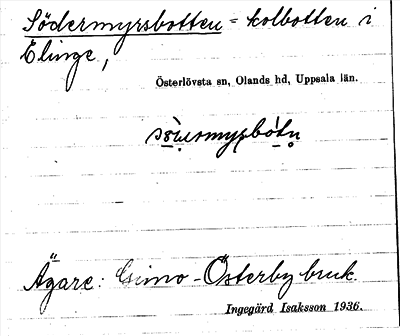 Södermyrsbotten = kolbotten i
Elinge,
Österlövsta sn, Olands hd, Uppsala län.
Ägare: Gimo-Österby bruk.
Ingegärd Isaksson 1936.